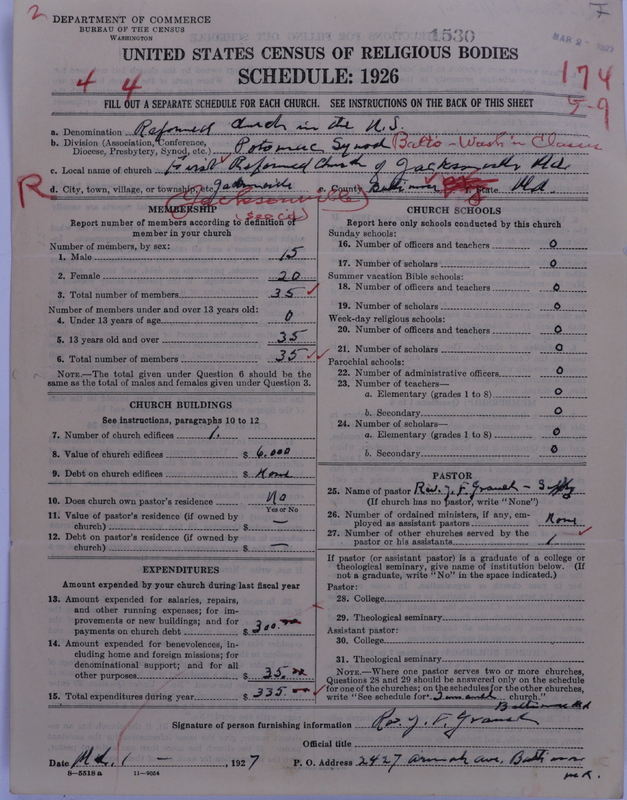 2 DEPARTMENT OF COMMERCE
BUREAU OF THE CENSUS
WASHINGTON
1530
MAR 2- 1927
7
UNITED STATES CENSUS OF RELIGIOUS BODIES
SCHEDULE: 1926
4 4
174
5-9
FILL OUT A SEPARATE SCHEDULE FOR EACH CHURCH. SEE INSTRUCTIONS ON THE BACK OF THIS SHEET
a. Denomination Reformed Church in the U.S.
b. Division (Association, Conference, Diocese, Presbytery, Synod, etc.) Potomac Synod Balto-Wash'n Classis
c. Local name of church First Reformed Church of Jacksonville Md.
R d. City, town, village, or township, etc. Jacksonville e. County Baltimore f. State Md.
(Jacksonville)
MEMBERSHIP
Report number of members according to definition of
member in your church
Number of members, by sex:
1. Male 15
2. Female 20
3. Total number of members 35
Number of members under and over 13 years old:
4. Under 13 years of age 0
5. 13 years old and over 35
6. Total number of members 35
NOTE.—The total given under Question 6 should be the
same as the total of males and females given under Question 3.
CHURCH BUILDINGS
See instructions, paragraphs 10 to 12
7. Number of church edifices 1.
8. Value of church edifices $ 6,000
9. Debt on church edifices $ None
10. Does church own pastor's residence No
Yes or No
11. Value of pastor's residence (if owned by
church) $ —
12. Debt on pastor's residence (if owned by
church) $ —
EXPENDITURES
Amount expended by your church during last fiscal year
13. Amount expended for salaries, repairs,
and other running expenses; for im-
provements or new buildings; and for
payments on church debt $ 300.00
14. Amount expended for benevolences, in-
cluding home and foreign missions; for
denominational support; and for all
other purposes $ 35.00
15. Total expenditures during year $ 335.00
CHURCH SCHOOLS
Report here only schools conducted by this church
Sunday schools:
16. Number of officers and teachers 0
17. Number of scholars 0
Summer vacation Bible schools:
18. Number of officers and teachers 0
19. Number of scholars 0
Week-day religious schools:
20. Number of officers and teachers 0
21. Number of scholars 0
Parochial schools:
22. Number of administrative officers 0
23. Number of teachers—
a. Elementary (grades 1 to 8) 0
b. Secondary 0
24. Number of scholars—
a. Elementary (grades 1 to 8) 0
b. Secondary 0
PASTOR
25. Name of pastor Rev. J. F. - Supply
(If church has no pastor, write "None")
26. Number of ordained ministers, if any, em-
ployed as assistant pastors None
27. Number of other churches served by the
pastor or his assistants 1
If pastor (or assistant pastor) is a graduate of a college or
theological seminary, give name of institution below. (If
not a graduate, write "No" in the space indicated.)
Pastor:
28. College
29. Theological seminary
Assistant pastor:
30. College
31. Theological seminary
NOTE.—Where one pastor serves two or more churches,
Questions 28 and 29 should be answered only on the schedule
for one of the churches; on the schedules for the other churches,
write "See schedule for church."
Baltimore Md
Signature of person furnishing information Rev. J. F.
Official title
Date 1927 P. O. Address 2427 ave, Baltimore
Md.
8—5518 a 11—9054